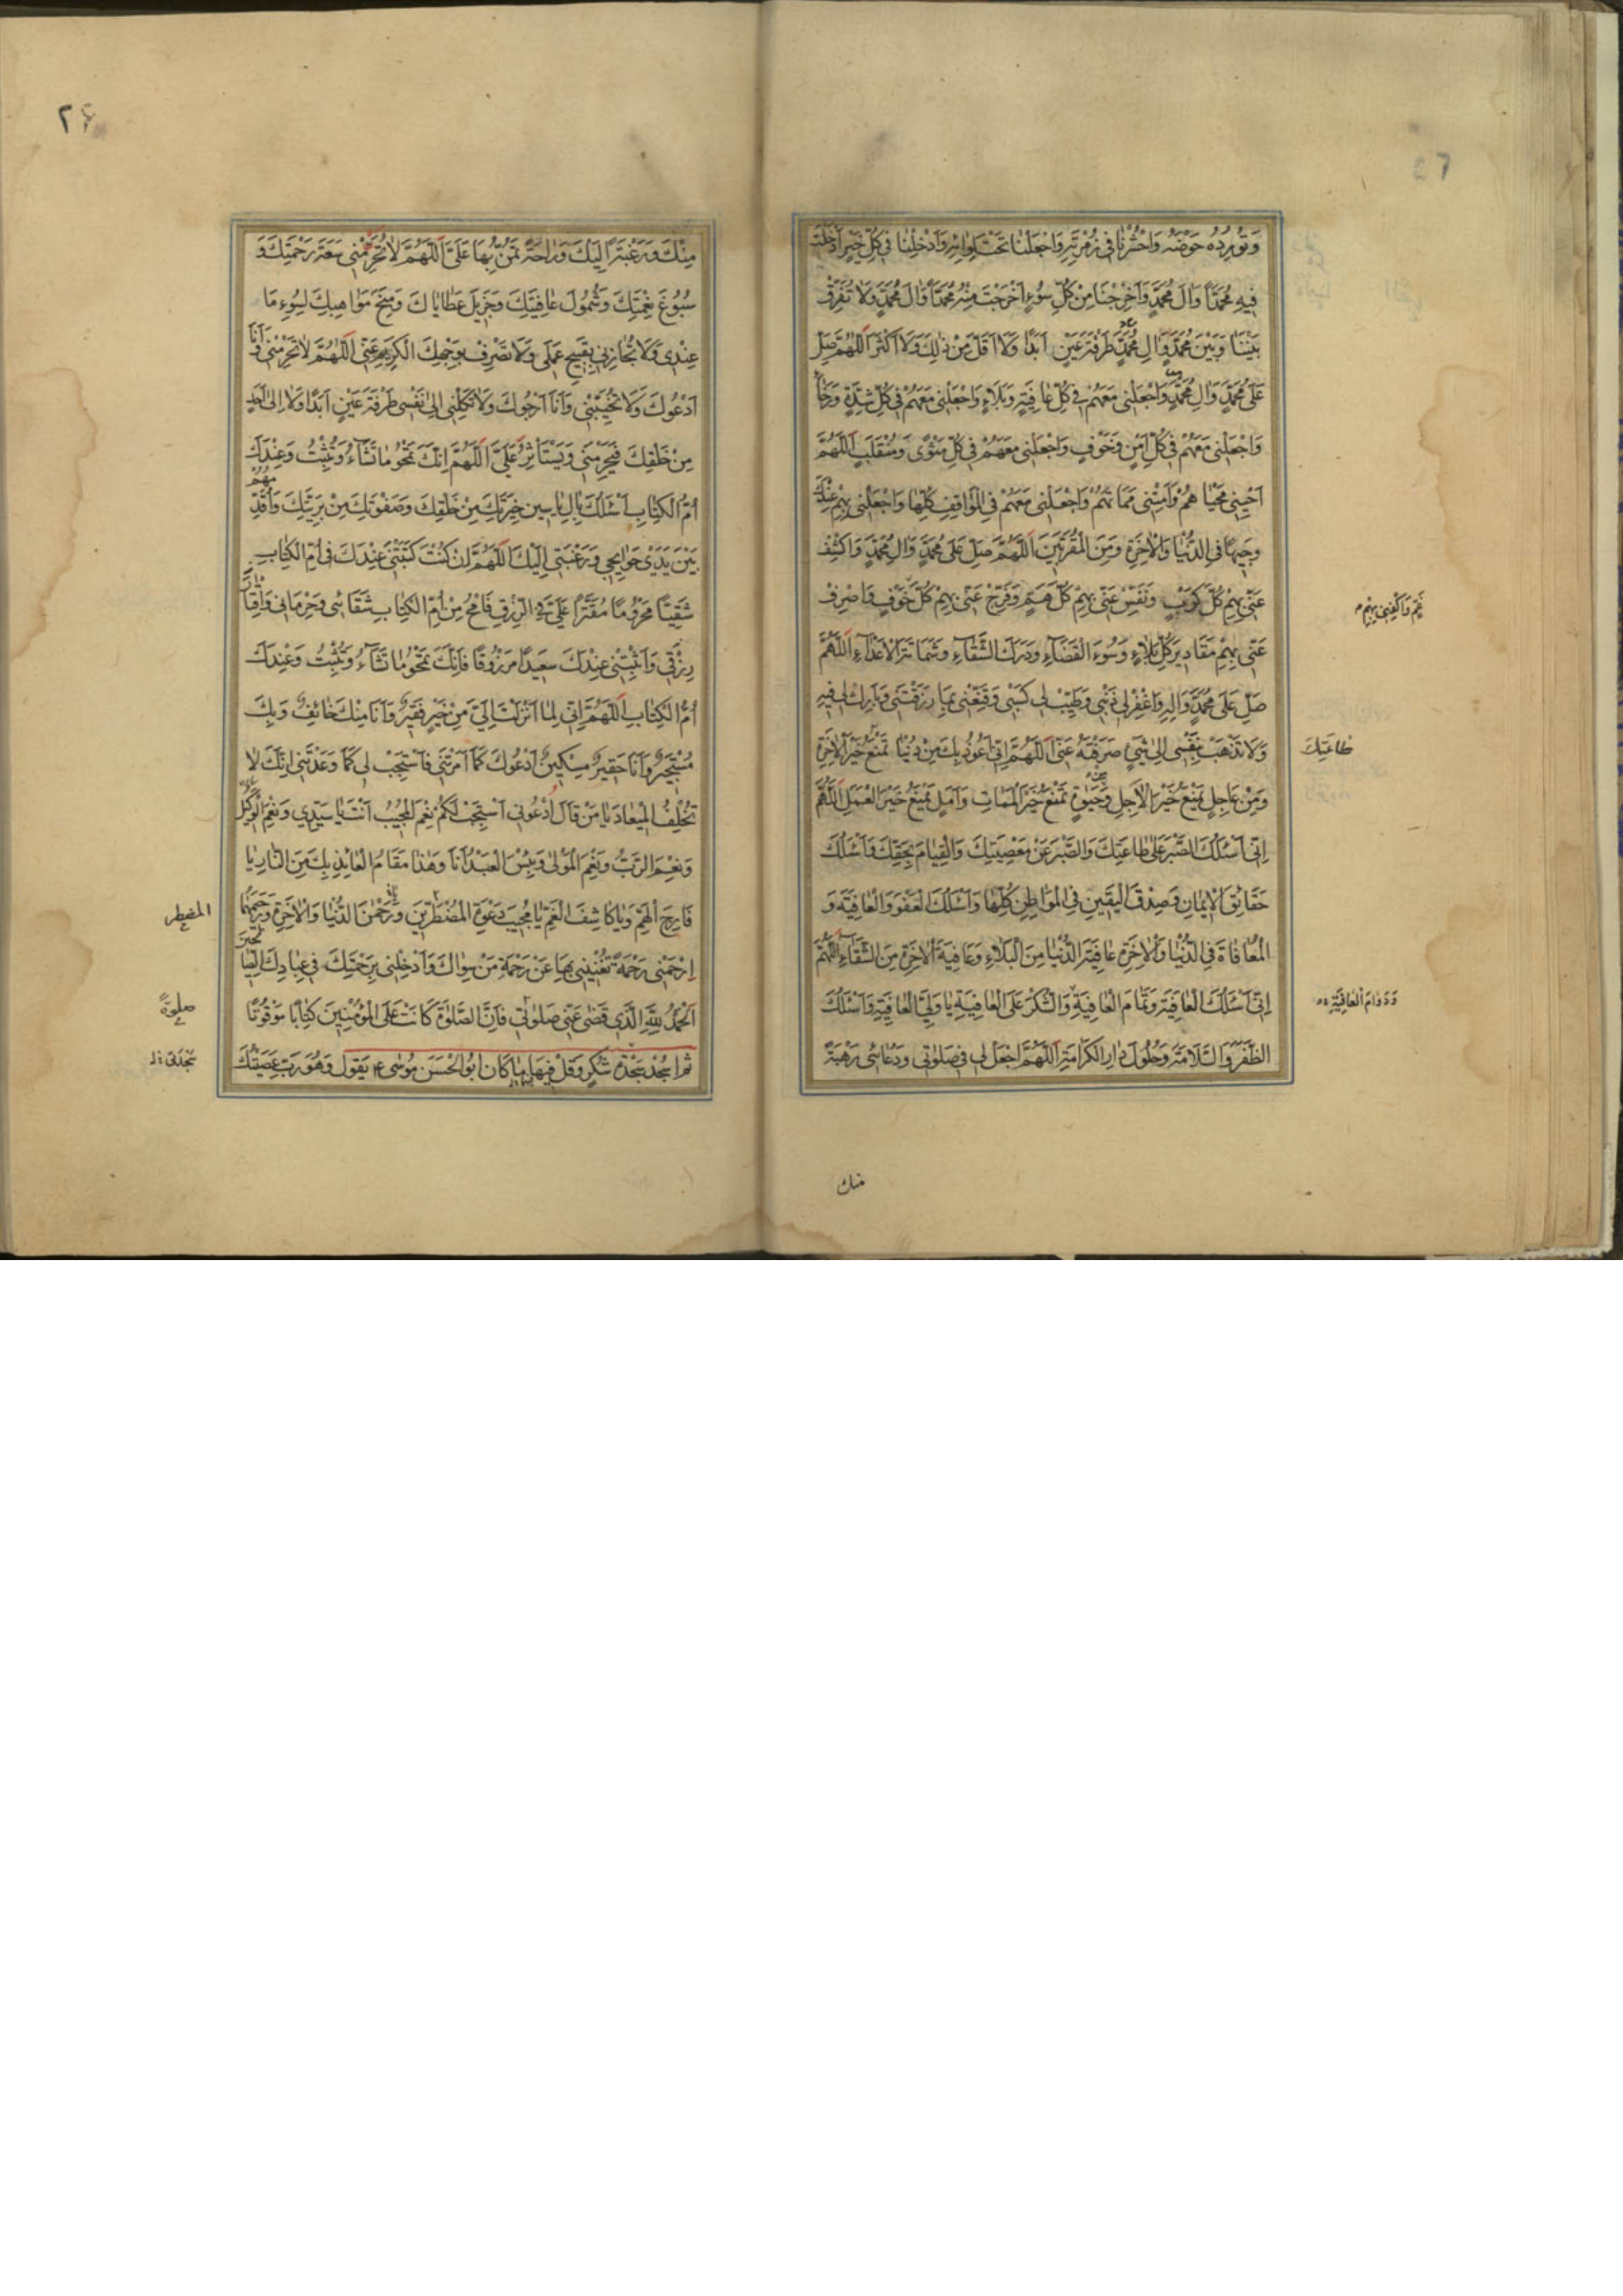 وَتُورِدُهُ حَوْضَهُ وَاحْشُرْنَا فِي زُمْرَتِهِ وَاجْعَلْنَا تَحْتَ لِوَائِهِ وَاَدْخِلْنَا فِي كُلِّ خَيْرٍ اَدْخَلْتَ
فِيهِ مُحَمَّدًا وَالَ مُحَمَّدٍ وَاَخْرِجْنَا مِنْ كُلِّ سُوءٍ اَخْرَجْتَ مِنْهُ مُحَمَّدًا وَالَ مُحَمَّدٍ وَلَا تُفَرِّقْ
بَيْنَنَا وَبَيْنَ مُحَمَّدٍ وَالِ مُحَمَّدٍ طَرْفَةَ عَيْنٍ اَبَدًا وَلَا اَقَلَّ مِنْ ذٰلِكَ وَلَا اَكْثَرَ اَللّٰهُمَّ صَلِّ
عَلٰى مُحَمَّدٍ وَالِ مُحَمَّدٍ وَاجْعَلْنِي مَعَهُمْ فِي كُلِّ عَافِيَةٍ وَبَلَاءٍ وَاجْعَلْنِي مَعَهُمْ فِي كُلِّ شِدَّةٍ وَرَخَاءٍ
وَاجْعَلْنِي مَعَهُمْ فِي كُلِّ اَمْنٍ وَخَوْفٍ وَاجْعَلْنِي مَعَهُمْ فِي كُلِّ مَثْوًى وَمُنْقَلَبٍ اَللّٰهُمَّ
اَحْيِنِي مَحْيَاهُمْ وَاَمِتْنِي مَمَاتَهُمْ وَاجْعَلْنِي مَعَهُمْ فِي الْمَوَاقِفِ كُلِّهَا وَاجْعَلْنِي بِهِمْ عِنْدَكَ
وَجِيهًا فِي الدُّنْيَا وَالْاٰخِرَةِ وَمِنَ الْمُقَرَّبِينَ اَللّٰهُمَّ صَلِّ عَلٰى مُحَمَّدٍ وَالِ مُحَمَّدٍ وَاكْشِفْ
عَنِّي بِهِمْ كُلَّ كَرْبٍ وَنَفِّسْ عَنِّي بِهِمْ كُلَّ هَمٍّ وَفَرِّجْ عَنِّي بِهِمْ كُلَّ خَوْفٍ وَاصْرِفْ
غَمٍّ وَاكْفِنِي بِهِمْ
عَنِّي بِهِمْ مَقَادِيرَ كُلِّ بَلَاءٍ وَسُوءَ الْقَضَاءِ وَدَرَكَ الشَّقَاءِ وَشَمَاتَةَ الْاَعْدَاءِ اَللّٰهُمَّ
صَلِّ عَلٰى مُحَمَّدٍ وَالِهِ وَاغْفِرْ لِي ذَنْبِي وَطَيِّبْ لِي كَسْبِي وَقَنِّعْنِي بِمَا رَزَقْتَنِي وَبَارِكْ لِي فِيهِ
وَلَا تَذْهَبْ بِنَفْسِي اِلٰى شَيْءٍ صَرَفْتَهُ عَنِّي اَللّٰهُمَّ اِنِّي اَعُوذُ بِكَ مِنْ دُنْيَا تَمْنَعُ خَيْرَ الْاٰخِرَةِ
طَاعَتِكَ
وَمِنْ عَاجِلٍ يَمْنَعُ خَيْرَ الْاٰجِلِ وَحَيٰوةٍ تَمْنَعُ خَيْرَ الْمَمَاتِ وَاَمَلٍ يَمْنَعُ خَيْرَ الْعَمَلِ اَللّٰهُمَّ
اِنِّي اَسْئَلُكَ الصَّبْرَ عَلٰى طَاعَتِكَ وَالصَّبْرَ عَنْ مَعْصِيَتِكَ وَالْقِيَامَ بِحَقِّكَ وَاَسْئَلُكَ
حَقَائِقَ الْاِيمَانِ وَصِدْقَ الْيَقِينِ فِي الْمَوَاطِنِ كُلِّهَا وَاَسْئَلُكَ الْعَفْوَ وَالْعَافِيَةَ وَ
الْمُعَافَاةَ فِي الدُّنْيَا وَالْاٰخِرَةِ عَافِيَةَ الدُّنْيَا مِنَ الْبَلَاءِ وَعَافِيَةَ الْاٰخِرَةِ مِنَ الشَّقَاءِ اَللّٰهُمَّ
اِنِّي اَسْئَلُكَ الْعَافِيَةَ وَتَمَامَ الْعَافِيَةِ وَالشُّكْرَ عَلَى الْعَافِيَةِ يَا وَلِيَّ الْعَافِيَةِ وَاَسْئَلُكَ
وَدَوَامَ الْعَافِيَةِ
الظَّفَرَ وَالسَّلَامَةَ وَحُلُولَ دَارِ الْكَرَامَةِ اَللّٰهُمَّ اجْعَلْ لِي فِي صَلٰوتِي وَدُعَائِي رَهْبَةً
منك
مِنْكَ وَرَغْبَةً اِلَيْكَ وَرَاحَةً تَمُنُّ بِهَا عَلَيَّ اَللّٰهُمَّ لَا تَحْرِمْنِي سَعَةَ رَحْمَتِكَ وَ
سُبُوغَ نِعْمَتِكَ وَشُمُولَ عَافِيَتِكَ وَجَزِيلَ عَطَايَاكَ وَمِنَحَ مَوَاهِبِكَ لِسُوءِ مَا
عِنْدِي وَلَا تُجَازِنِي بِقَبِيحِ عَمَلِي وَلَا تَصْرِفْ بِوَجْهِكَ الْكَرِيمِ عَنِّي اَللّٰهُمَّ لَا تَحْرِمْنِي وَاَنَا
اَدْعُوكَ وَلَا تُخَيِّبْنِي وَاَنَا اَرْجُوكَ وَلَا تَكِلْنِي اِلٰى نَفْسِي طَرْفَةَ عَيْنٍ اَبَدًا وَلَا اِلٰى اَحَدٍ
مِنْ خَلْقِكَ فَيَحْرِمَنِي وَيَسْتَأْثِرَ عَلَيَّ اَللّٰهُمَّ اِنَّكَ تَمْحُو مَا تَشَاءُ وَتُثْبِتُ وَعِنْدَكَ
اُمُّ الْكِتَابِ اَسْئَلُكَ بِالِ يَاسِينَ خِيَرَتِكَ مِنْ خَلْقِكَ وَصَفْوَتِكَ مِنْ بَرِيَّتِكَ وَاُقَدِّمُهُمْ
بَيْنَ يَدَيْ حَوَائِجِي وَرَغْبَتِي اِلَيْكَ اَللّٰهُمَّ اِنْ كُنْتَ كَتَبْتَنِي عِنْدَكَ فِي اُمِّ الْكِتَابِ
شَقِيًّا مَحْرُومًا مُقَتَّرًا عَلَيَّ فِي الرِّزْقِ فَامْحُ مِنْ اُمِّ الْكِتَابِ شَقَائِي وَحِرْمَانِي وَاِقْتَارَ
رِزْقِي وَاَثْبِتْنِي عِنْدَكَ سَعِيدًا مَرْزُوقًا فَاِنَّكَ تَمْحُو مَا تَشَاءُ وَتُثْبِتُ وَعِنْدَكَ
اُمُّ الْكِتَابِ اَللّٰهُمَّ اِنِّي لِمَا اَنْزَلْتَ اِلَيَّ مِنْ خَيْرٍ فَقِيرٌ وَاَنَا مِنْكَ خَائِفٌ وَبِكَ
مُسْتَجِيرٌ وَاَنَا حَقِيرٌ مِسْكِينٌ اَدْعُوكَ كَمَا اَمَرْتَنِي فَاسْتَجِبْ لِي كَمَا وَعَدْتَنِي اِنَّكَ لَا
تُخْلِفُ الْمِيعَادَ يَا مَنْ قَالَ اُدْعُونِي اَسْتَجِبْ لَكُمْ نِعْمَ الْمُجِيبُ اَنْتَ يَا سَيِّدِي وَنِعْمَ الْوَكِيلُ
وَنِعْمَ الرَّبُّ وَنِعْمَ الْمَوْلٰى وَبِئْسَ الْعَبْدُ اَنَا وَهٰذَا مَقَامُ الْعَائِذِ بِكَ مِنَ النَّارِ يَا
فَارِجَ الْهَمِّ وَيَا كَاشِفَ الْغَمِّ يَا مُجِيبَ دَعْوَةِ الْمُضْطَرِّينَ وَرَحْمٰنَ الدُّنْيَا وَالْاٰخِرَةِ وَرَحِيمَهُمَا
المضطر
اِرْحَمْنِي رَحْمَةً تُغْنِينِي بِهَا عَنْ رَحْمَةِ مَنْ سِوَاكَ وَاَدْخِلْنِي بِرَحْمَتِكَ فِي عِبَادِكَ الصَّالِحِينَ
اَلْحَمْدُ لِلّٰهِ الَّذِي قَضٰى عَنِّي صَلٰوتِي فَاِنَّ الصَّلٰوةَ كَانَتْ عَلَى الْمُؤْمِنِينَ كِتَابًا مَوْقُوتًا
صلوةً
ثُمَّ اسْجُدْ سَجْدَةَ شُكْرٍ وَقُلْ فِيهَا مَا كَانَ اَبُو الْحَسَنِ مُوسٰى ع يَقُولُ وَهُوَ رَبِّ عَصَيْتُكَ